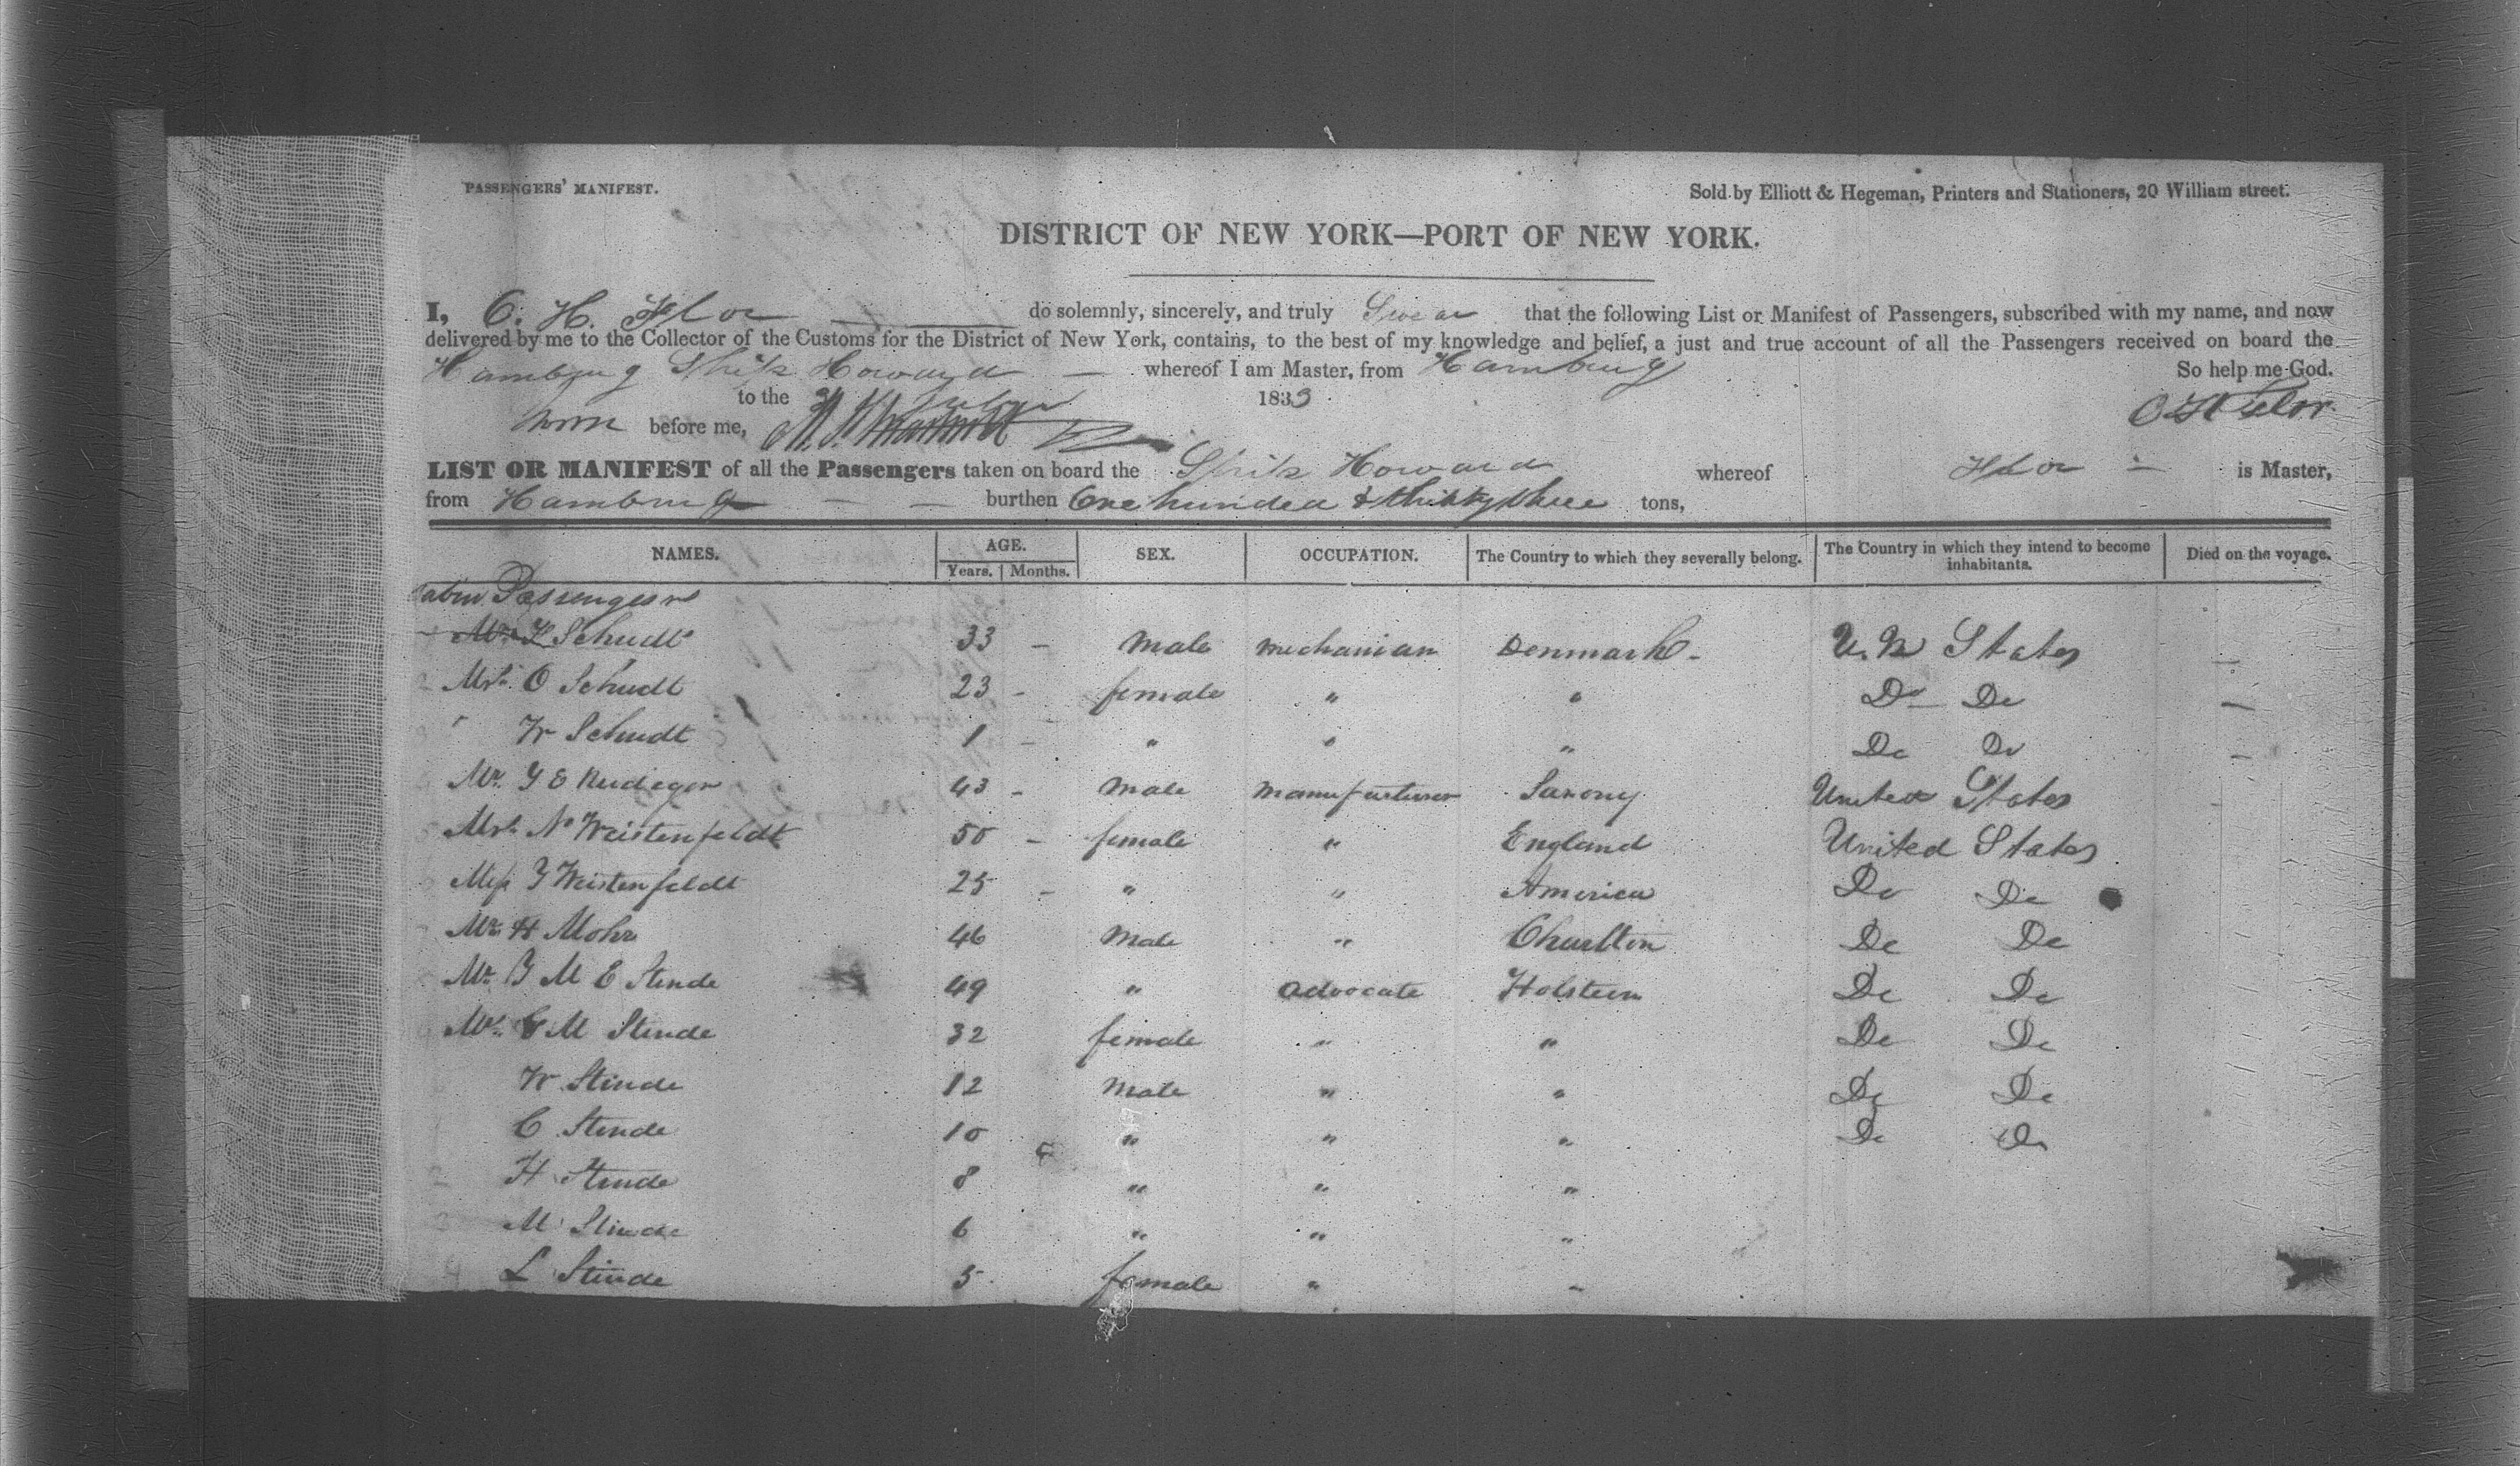 PASSENGERS' MANIFEST.
Sold by Elliott & Hegeman, Printers and Stationers, 20 William street.
DISTRICT OF NEW YORK—PORT OF NEW YORK.
I, C. H. Flor do solemnly, sincerely, and truly Swear that the following List or Manifest of Passengers, subscribed with my name, and now
delivered by me to the Collector of the Customs for the District of New York, contains, to the best of my knowledge and belief, a just and true account of all the Passengers received on board the
Hamburg Ship Howard — whereof I am Master, from Hamburg So help me God.
to the 1833
before me, C H Flor
LIST OR MANIFEST of all the Passengers taken on board the Ship Howard whereof Flor is Master,
from Hamburg — — burthen One hundred & thirty three tons,
NAMES. AGE. SEX. OCCUPATION. The Country to which they severally belong. The Country in which they intend to become inhabitants. Died on the voyage.
Years. Months.
Cabin Passengers
Mr. Schudt 33 — male mechanian Denmark - U.N States —
Mrs. O Schudt 23 - female " " Do Do —
W Schudt 1 - " " " Do Do —
Mr. G E Rudeger 43 - male manufacturer Saxony United States -
Mrs. N Weistenfeldt 50 - female " England United States
Miss Weistenfeldt 25 - " " America Do Do
Mr. H Mohr 46 male " Charlton Do Do
Mr. M E Stinde 49 " advocate Holstein Do Do
M Stinde 32 female " " Do Do
W Stinde 12 male " " Do Do
C Stinde 10 " " " Do Do
H Stinde 8 " " "
M Stinde 6 " " "
L Stinde 5 female " "